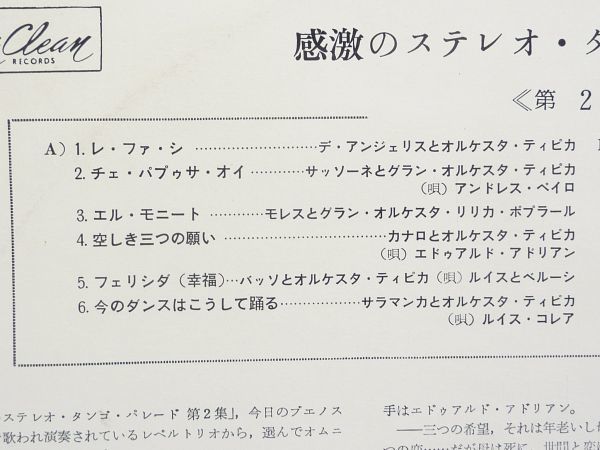 Clean
RECORDS
感激のステレオ・タ
≪第 2
A) 1. レ・ファ・シ ……………………デ・アンジェリスとオルケスタ・ティピカ
2. チェ・パプゥサ・オイ …………サッソーネとグラン・オルケスタ・ティピカ
(唄) アンドレス・ペイロ
3. エル・モニート ……………モレスとグラン・オルケスタ・リリカ・ポプラール
4. 空しき三つの願い ……………………………カナロとオルケスタ・ティピカ
(唄) エドゥアルド・アドリアン
5. フェリシダ (幸福)…バッソとオルケスタ・ティピカ (唄) ルイスとベルーシ
6. 今のダンスはこうして踊る………………サラマンカとオルケスタ・ティピカ
(唄) ルイス・コレア
ステレオ・タンゴ・パレード 第2集」, 今日のブエノス
歌われ演奏されているレペルトリオから, 選んでオムニ
手はエドゥアルド・アドリアン。
――三つの希望, それは年老いし
の恋……だが母は死に, 世間と恋